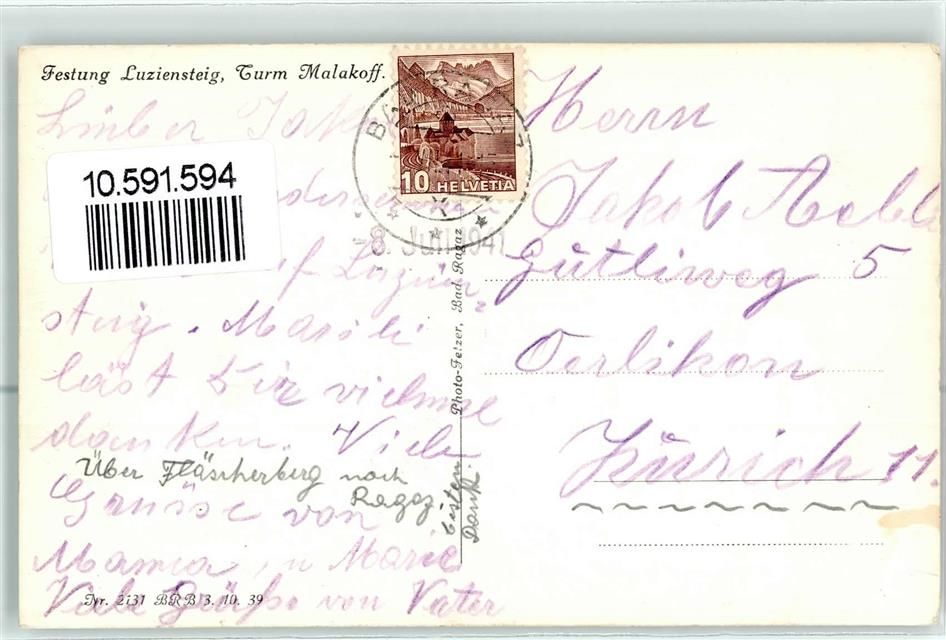 Festung Luziensteig, Turm Malakoff.
Lieber Jak
10.591.594
f Luzien=
steig. Marili
läst Dir vielmal
danken. Viele
Grüsse von
Mamma, u Marie
Viele Grüße von Vater
Über Fläscherberg nach
Ragaz.
besten
Dank.
Nr. 2131 BRB 3. 10. 39
Photo-Fetzer, Bad Ragaz
10 HELVETIA
-8. Juli 1941
Herrn
Jakob
Gütliweg 5
Oerlikon
Zürich 11.